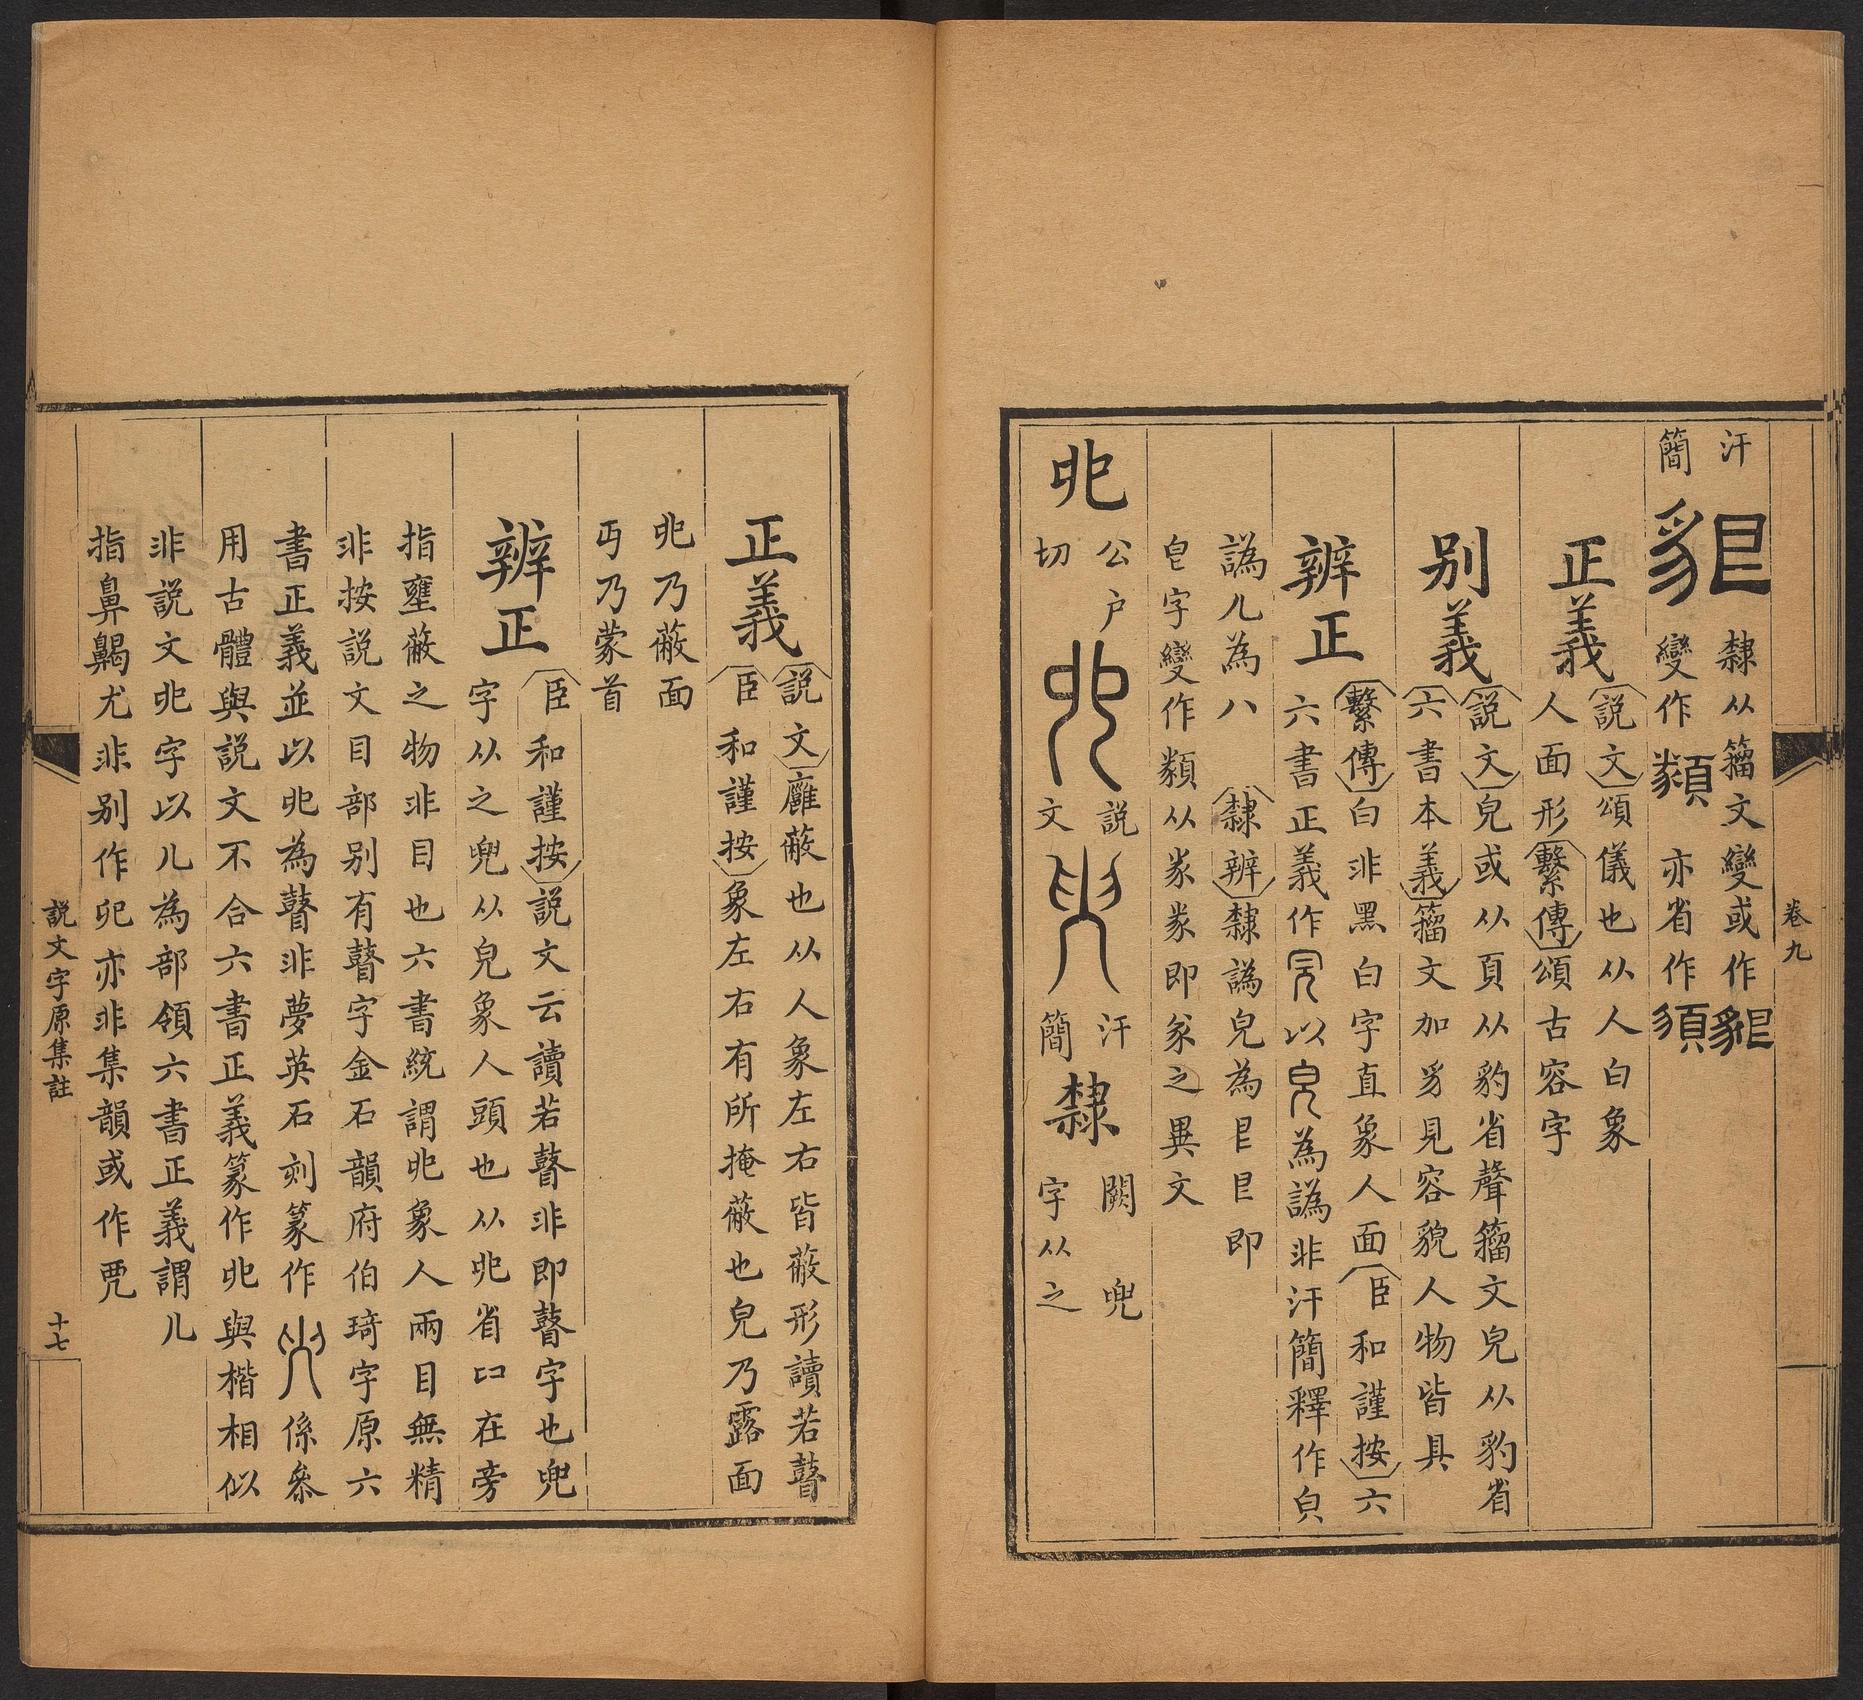 卷九
汗簡
貌
隸从籀文變或作貌
變作䫉亦省作䪲
正義
說文頌儀也从人白象
人面形繫傳頌古容字
别義
說文皃或从頁从豹省聲籀文皃从豹省
六書本義籀文加豸見容貌人物皆具
辨正
繫傳白非黑白字直象人面臣和謹按六
六書正義作以皃為譌非汗簡釋作貟
譌儿為八
隸辨隸譌皃為即
皃字變作䫉从豸豸即豸之異文
𠑹
公户切
說文
汗簡
隸
闕兜字从之
正義
說文廱蔽也从人象左右皆蔽形讀若瞽
臣和謹按象左右有所掩蔽也皃乃露面
𠑹乃蔽面
丏乃蒙首
辨正
臣和謹按說文云讀若瞽非即瞽字也兜
字从之兜从皃象人頭也从𠑹省𠙴在旁
指壅蔽之物非目也六書統謂𠑹象人兩目無精
非按說文目部别有瞽字金石韻府伯琦字原六
書正義並以𠑹為瞽非夢英石刻篆作係叅
用古體與說文不合六書正義篆作𠑹與楷相似
非說文𠑹字以儿為部領六書正義謂儿
指鼻齃尤非别作𠑹亦非集韻或作
說文字原集註
十七